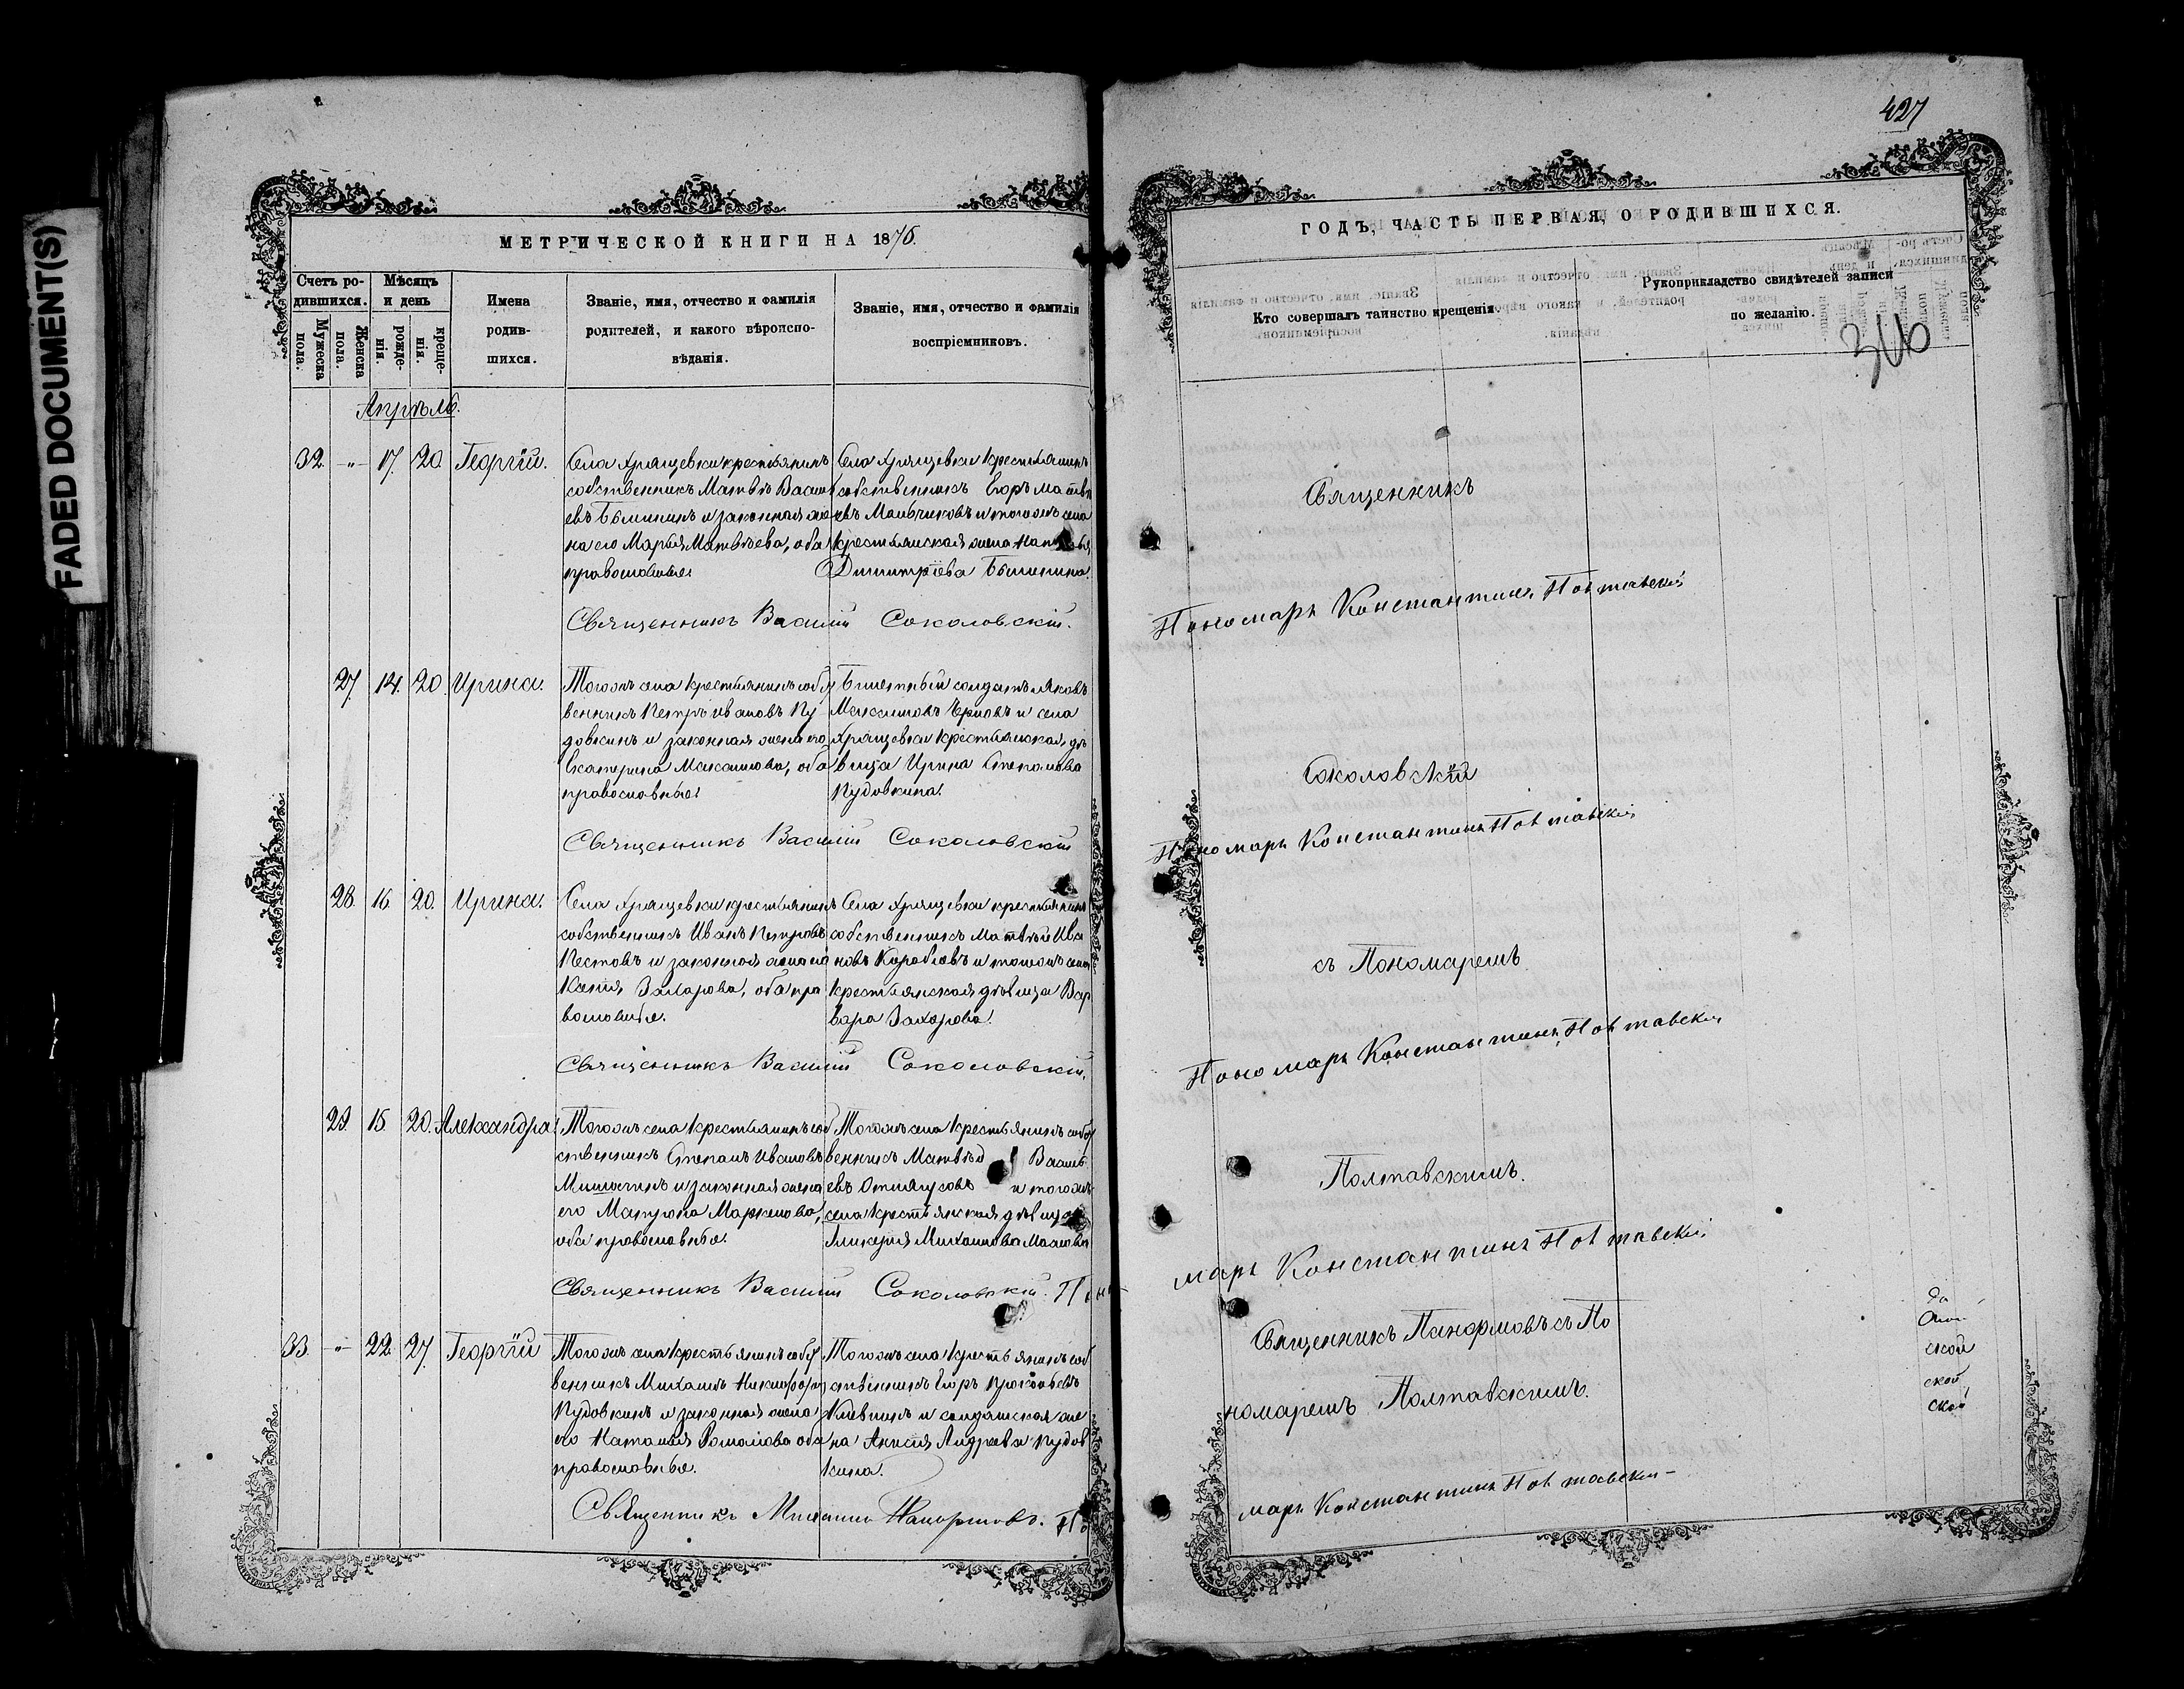 FADED DOCUMENT(S)
МЕТРИЧЕСКОЙ КНИГИ НА 1876.
Счетъ ро-
дившихся.
Мужеска
пола.
Женска
пола.
Мѣсяцъ
и день
рожде-
нія.
креще-
нія.
Имена
родив-
шихся.
Званіе, имя, отчество и фамилія
родителей, и какого вѣроиспо-
вѣданія.
Званіе, имя, отчество и фамилія
воспріемниковъ.
Апрѣль.
32. -"- 17. 20. Георгій.
Села Хрящевки крестьянинъ
собственникъ Матвѣй Василь
евъ Бѣлининъ и законная же
на его Марья Матвѣева, оба
православные
Села Хрящевки крестьянинъ
собственникъ Егоръ Матвѣ
евъ Мальчиковъ и тогожъ села
крестьянская жена
Димитріева
Священникъ Василій Соколовскій.
27. 14. 20. Ирина.
Тогожъ села крестьянинъ собст
венникъ Петръ Ивановъ Пу
довкинъ и законная жена его
Екатерина Максимова, оба
православные
Билетный солдатъ Яковъ
Максимовъ и села
Хрящевки крестьянская дѣ
вица Ирина Степанова
Пудовкина.
Священникъ Василій Соколовскій
28. 16. 20. Ирина.
Села Хрящевки крестьянинъ
собственникъ Иванъ Петровъ
Пестовъ и законная жена его
Ксенія Захарова, оба пра
вославные.
Села Хрящевки крестьянинъ
собственникъ Матвѣй Ива
новъ Кораблевъ и тогожъ села
крестьянская дѣвица Вар
вара Захарова.
Священникъ Василій Соколовскій.
29. 15. 20. Александра.
Тогожъ села крестьянинъ соб
ственникъ Степанъ Ивановъ
и законная жена
его Матрона Маркелова,
оба православные.
Тогожъ села крестьянинъ собст
венникъ Матвѣй Василь
евъ и тогожъ
села крестьянская дѣвица
Гликерія Михаилова
Священникъ Василій Соколовскій. Поно
33. -"- 22. 27. Георгій
Тогожъ села крестьянинъ собст
венникъ Михаилъ Никифоровъ
Пудовкинъ и законная жена
его Наталья Романова оба
православные.
Тогожъ села крестьянинъ соб
ственникъ Егоръ Прокофьевъ
и солдатская же
на Анисія Андреева Пудов
кина.
Священникъ Михаилъ Панормовъ. По
427
ГОДЪ, ЧАСТЬ ПЕРВАЯ, О РОДИВШИХСЯ.
Кто совершалъ таинство крещенія.
Рукоприкладство свидѣтелей записи
по желанію.
Священникъ
Пономарь Константинъ Полтавскій
Соколовскій
Пономарь Константинъ Полтавскій
съ Пономаремъ
Пономарь Константинъ Полтавскій
Полтавскимъ.
марь Константинъ Полтавскій
Священникъ Панормовъ съ По
номаремъ Полтавскимъ.
марь Константинъ Полтавскій
ской
ской
ской